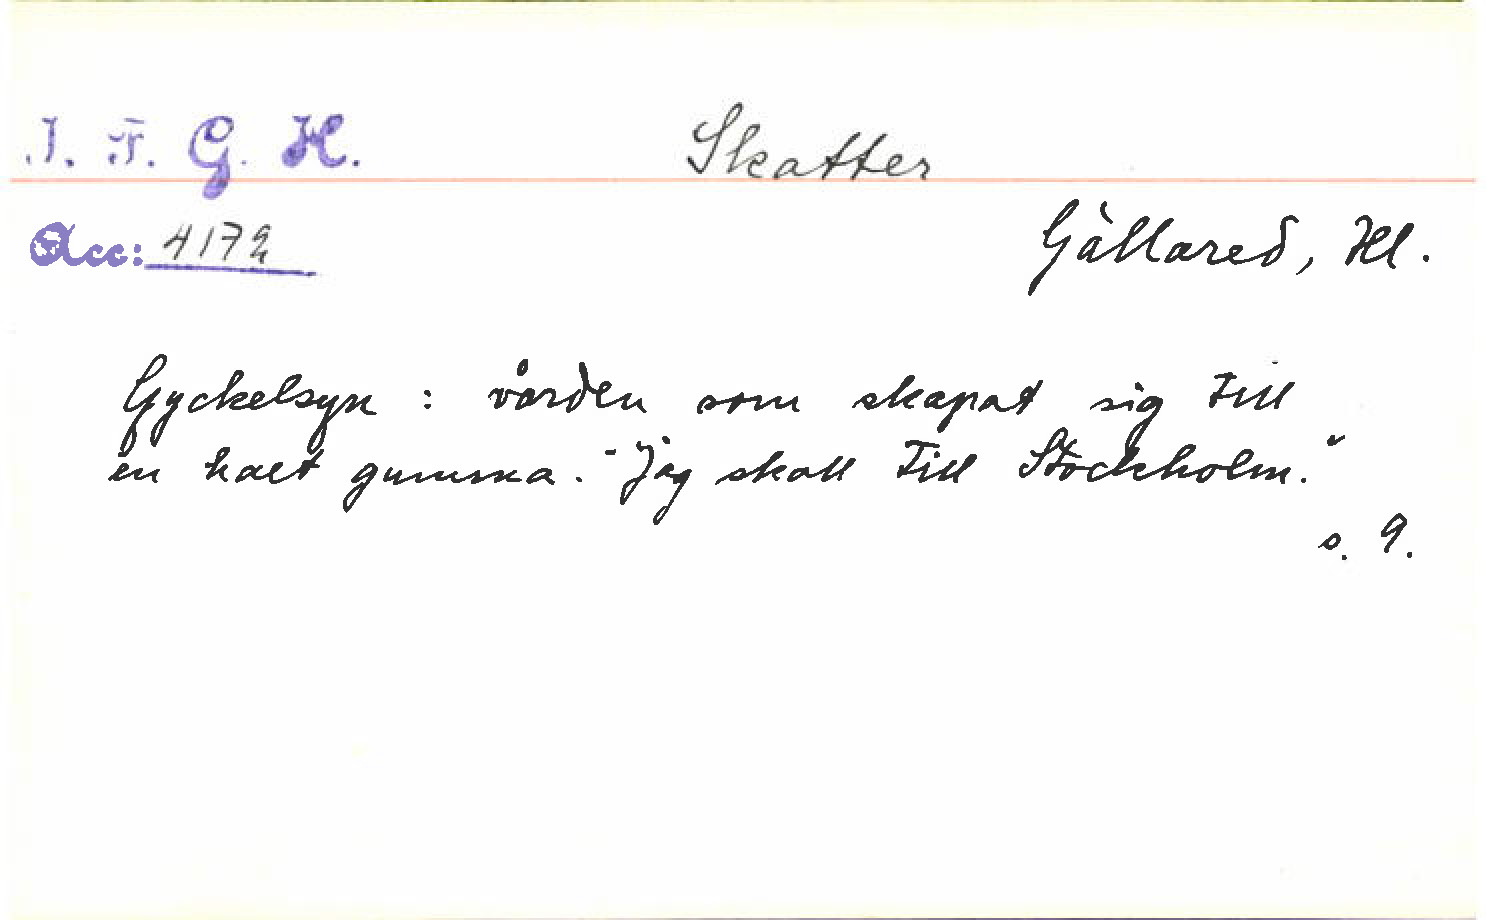 I. F. G. H.
Skatter
Acc: 4172
Gällared, Hl.
Gyckelsyn : vården som skapat sig till
en halt gumma. "Jag skall till Stockholm."
s. 9.